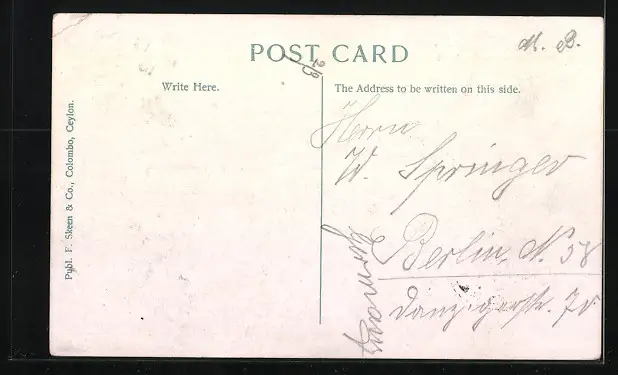 POST CARD
M. B.
Write Here.
The Address to be written on this side.
Publ. F. Skeen & Co., Colombo, Ceylon.
Herrn
W. Springer
Berlin. N. 58
Danzigerstr. 70
Germany